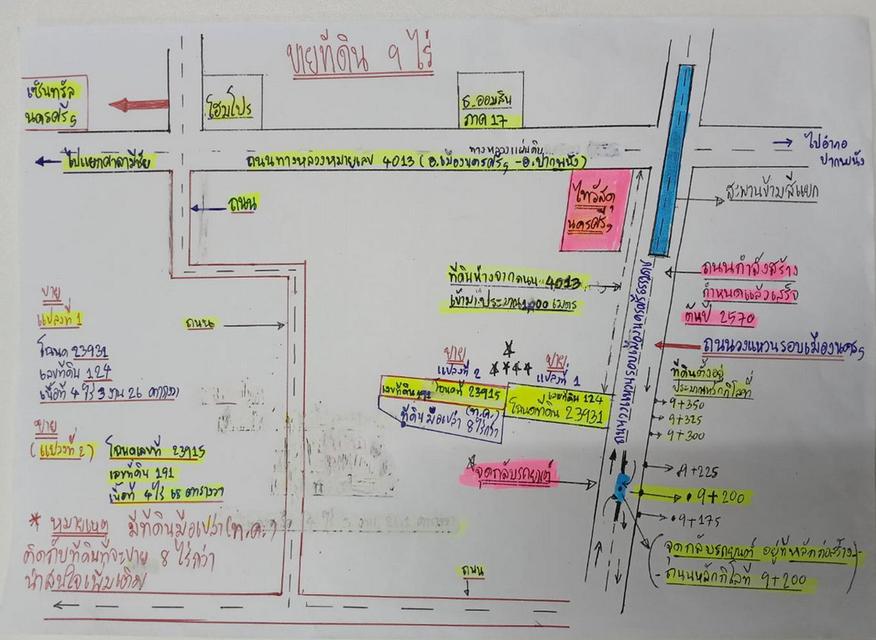 ขายที่ดิน 9 ไร่
เซ็นทรัล
นครศรีฯ
โฮมโปร
ธ.ออมสิน
ภาค 17
ไปแยกศาลามีชัย
ทางหลวงแผ่นดิน
ถนนทางหลวงหมายเลข 4013 (อ.เมืองนครศรีฯ - อ.ปากพนัง)
ไปอำเภอ
ปากพนัง
ไทวัสดุ
นครศรีฯ
สะพานข้ามสี่แยก
ถนน
ที่ดินห่างจากถนน 4013
เข้ามาประมาณ เมตร
ถนนกำลังสร้าง
กำหนดแล้วเสร็จ
ต้นปี 2570
ถนนวงแหวนรอบเมืองนครฯ
ขาย
แปลงที่ 1
โฉนด 23931
เลขที่ดิน 124
เนื้อที่ 4 ไร่ 3 งาน 26 ตารางวา
ถนน
ขาย
แปลงที่ 2
ขาย
แปลงที่ 1
เลขที่ดิน 191 โฉนดที่ 23915
เลขที่ดิน 124
โฉนดที่ดิน 23931
ที่ดินมือเปล่า (ท.ค.)
8 ไร่กว่า
ที่ดินตั้งอยู่
ประมาณหลักกิโลที่
9+350
9+325
9+300
9+225
9+200
9+175
ขาย
(แปลงที่ 2)
โฉนดเลขที่ 23915
เลขที่ดิน 191
เนื้อที่ 4 ไร่ 68 ตารางวา
จุดกลับรถยนต์
* หมายเหตุ มีที่ดินมือเปล่า (ท.ค.)
ติดกับที่ดินที่จะขาย 8 ไร่กว่า
น่าสนใจเพิ่มเติม
ถนน
(จุดกลับรถยนต์ อยู่ที่หลักก่อสร้าง-
- ถนนหลักกิโลที่ 9+200